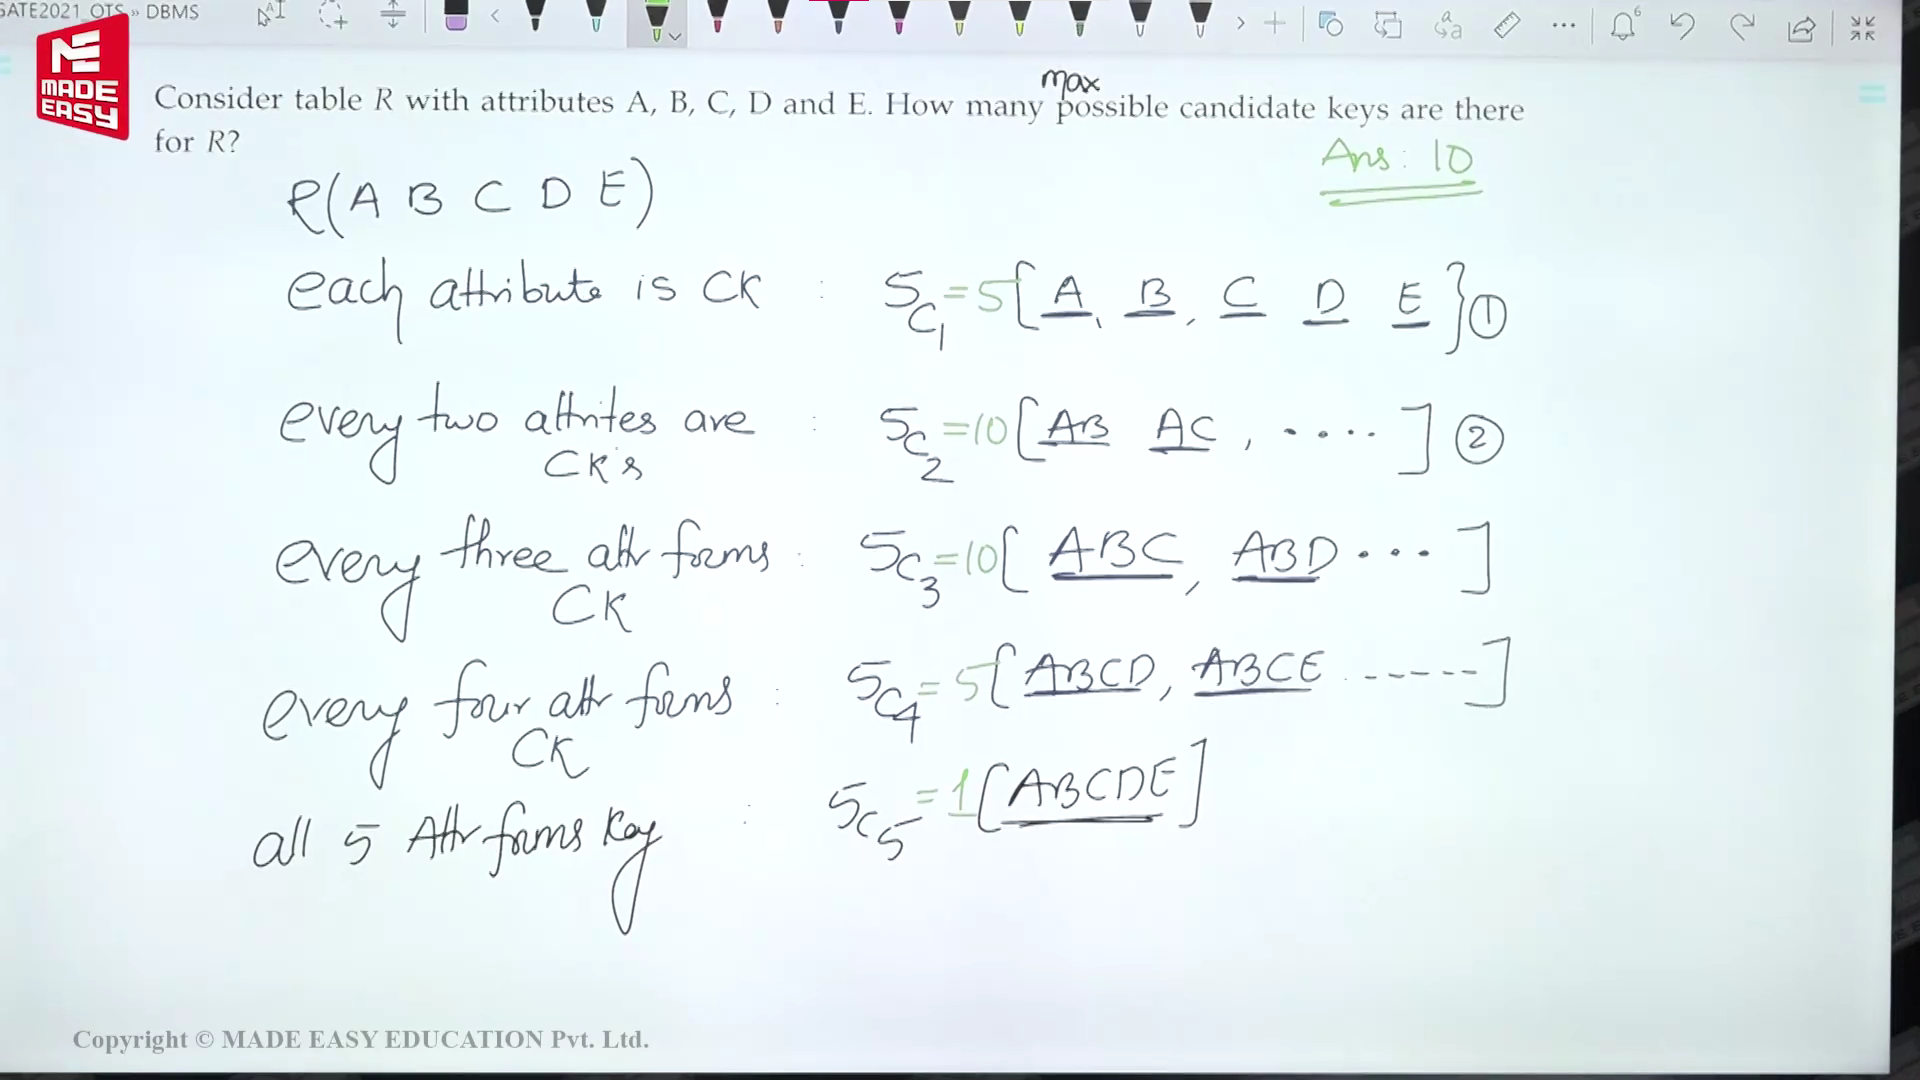 GATE2021_OTS » DBMS
MADE
EASY
max
Consider table R with attributes A, B, C, D and E. How many possible candidate keys are there
for R?
Ans: 10
R(A B C D E)
each attribute is CK : 5C1 = 5 [A, B, C D E} ①
every two attrites are : 5C2 = 10 [AB AC, ....] ②
CK's
every three attr forms : 5C3 = 10 [ABC, ABD ...]
CK
every four attr forms : 5C4 = 5 [ABCD, ABCE ------]
CK
all 5 Attr forms Key : 5C5 = 1 [ABCDE]
Copyright © MADE EASY EDUCATION Pvt. Ltd.